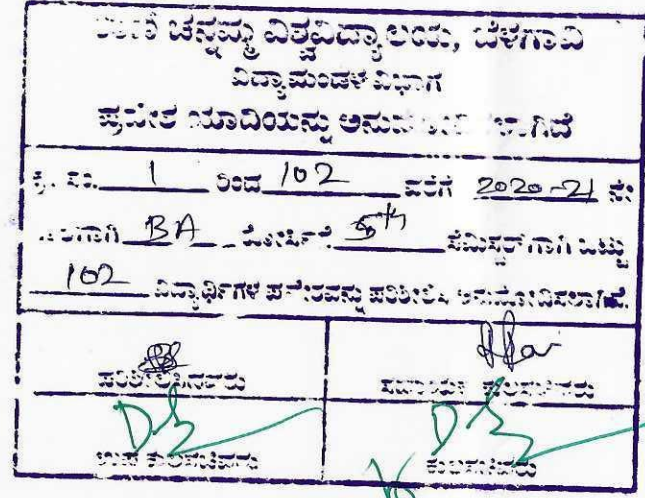 ಚನ್ನಮ್ಮ ವಿಶ್ವವಿದ್ಯಾಲಯ, ಬೆಳಗಾವಿ
ವಿದ್ಯಾಮಂಡಳ ವಿಭಾಗ
ಪ್ರವೇಶ ಯಾದಿಯನ್ನು
ಕ್ರ. ಸಂ. 1 ರಿಂದ 102 ವರೆಗೆ 2020-21 ನೇ
BA ಕೋರ್ಸಿನ 5th ಸೆಮಿಸ್ಟರ್‌ಗಾಗಿ ಒಟ್ಟು
102 ವಿದ್ಯಾರ್ಥಿಗಳ ಪ್ರವೇಶವನ್ನು ಪರಿಶೀಲಿಸಿ ಅನುಮೋದಿಸಲಾಗಿದೆ.
ಪರಿಶೀಲಿಸಿದವರು ಸಹಾಯಕ ಕುಲಸಚಿವರು
ಉಪ ಕುಲಸಚಿವರು ಕುಲಸಚಿವರು